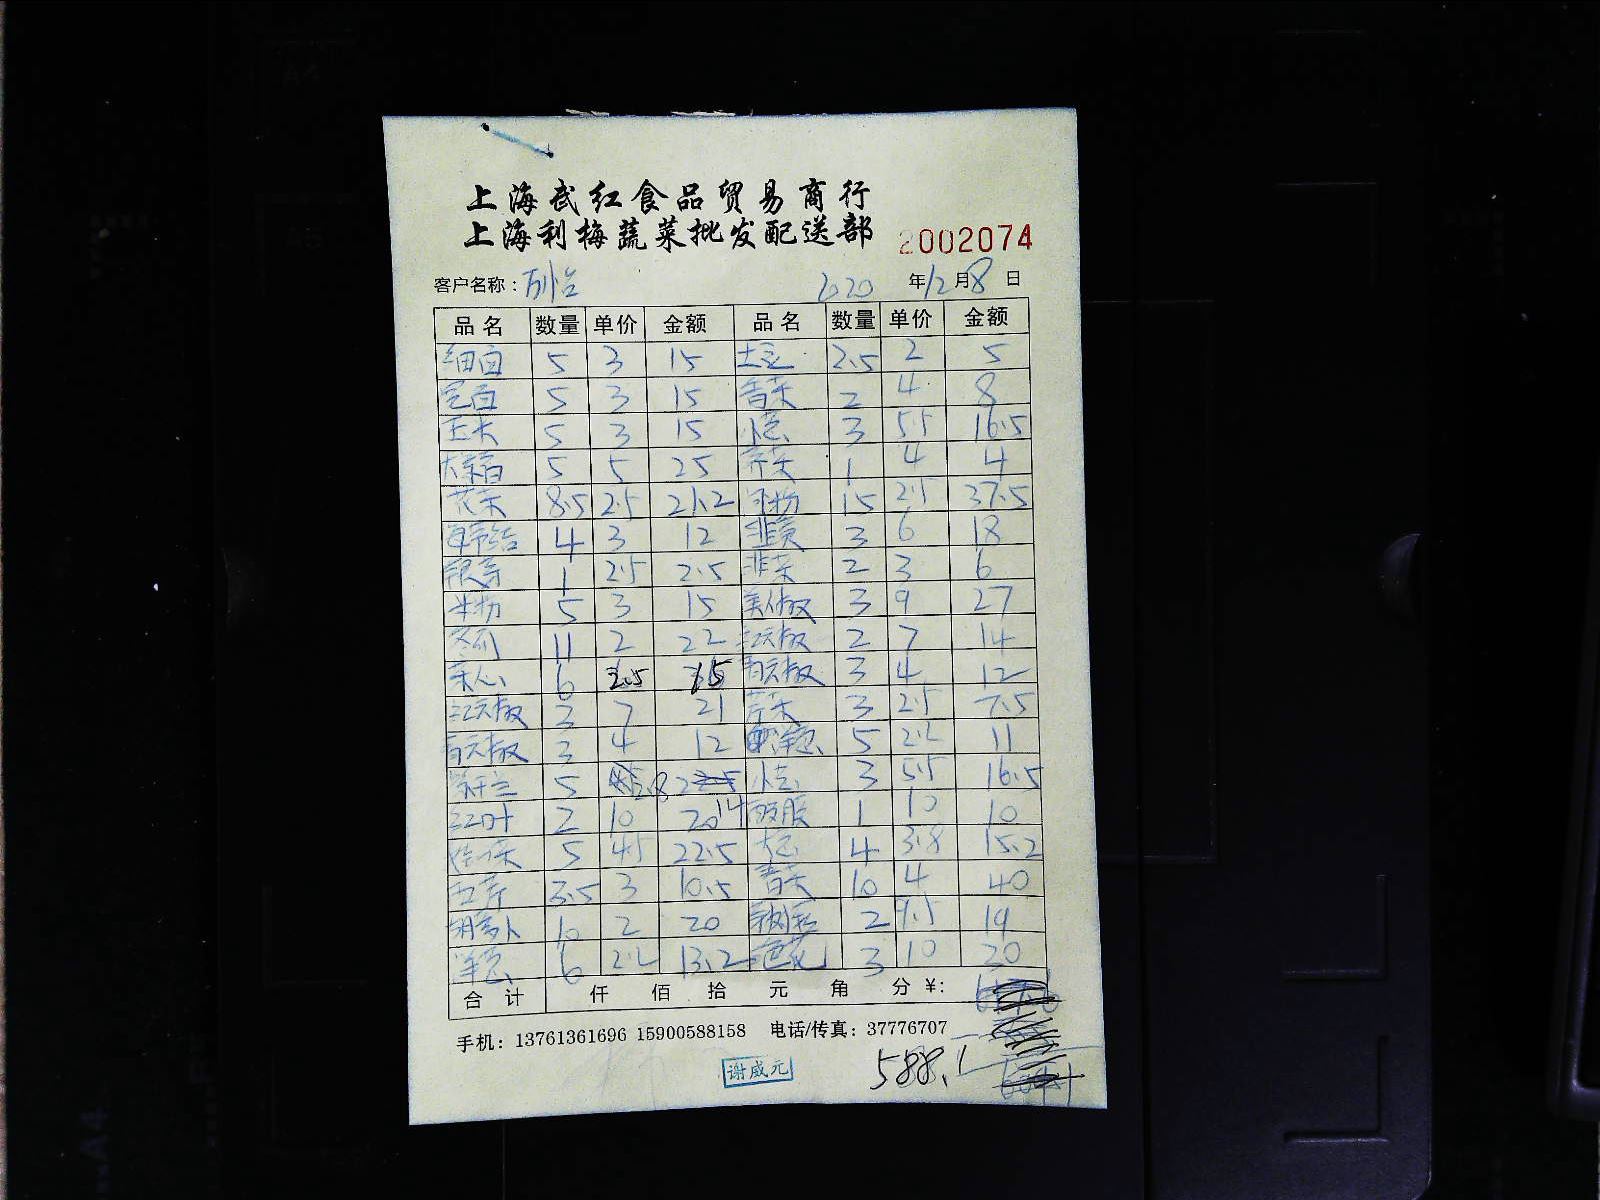 上海武红食品贸易商行
上海利梅蔬菜批发配送部 2002074
客户名称： 2020 年12月8日
品名 数量 单价 金额 品名 数量 单价 金额
细面 5 3 15 土豆 2.5 2 5
宽面 5 3 15 香菜 2 4 8
玉米 5 3 15 小葱 3 5.5 16.5
5 5 25 芹菜 1 4 4
花菜 8.5 2.5 21.2 河粉 15 2.5 37.5
海带结 4 3 12 韭黄 3 6 18
银芽 1 2.5 2.5 韭菜 2 3 6
米粉 5 3 15 美人椒 3 9 27
冬瓜 11 2 22 红尖椒 2 7 14
菜心 6 2.5 15 青尖椒 3 4 12
红尖椒 3 7 21 芹菜 3 2.5 7.5
青尖椒 3 4 12 洋葱 5 2.2 11
5 2.8 小葱 3 5.5 16.5
2 10 20 1 10 10
5 4.5 22.5 大葱 4 3.8 15.2
西芹 3.5 3 10.5 青菜 10 4 40
胡萝卜 10 2 20 2 9.5 19
洋葱 6 2.2 13.2 3 10 20
合计 仟 佰 拾 元 角 分 ¥:
手机：13761361696 15900588158 电话/传真：37776707
588.1
谢威元